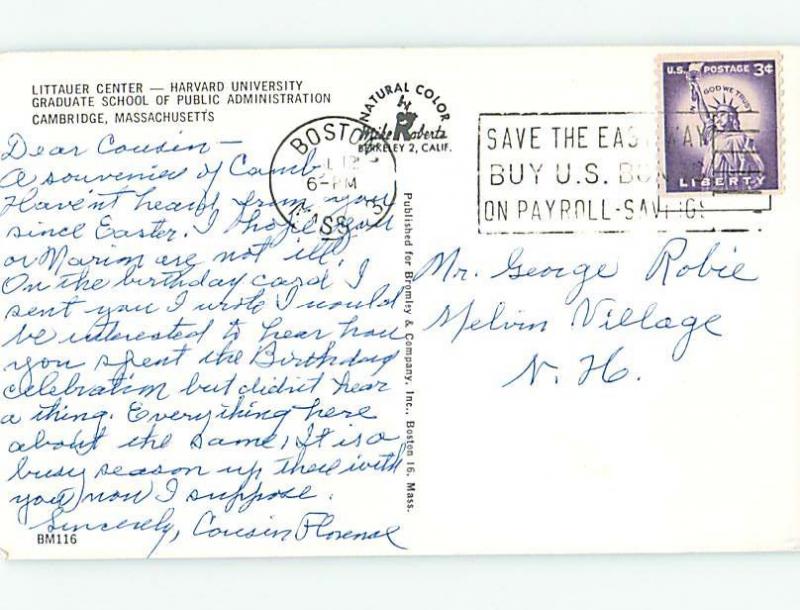 LITTAUER CENTER — HARVARD UNIVERSITY
GRADUATE SCHOOL OF PUBLIC ADMINISTRATION
CAMBRIDGE, MASSACHUSETTS
Dear Cousin —
A souvenir of Camb.
Haven't heard from you
since Easter. I hope you
or Marion are not ill.
On the birthday card I
sent you I wrote I would
be interested to hear how
you spent the Birthday
celebration but didn't hear
a thing. Everything here
about the same. It is a
busy season up there with
you now I suppose.
Sincerely, Cousin Florence
BM116
NATURAL COLOR
by
Mike Roberts
BERKELEY 2, CALIF.
BOSTON
12
6-PM
MASS.
SAVE THE EASY WAY
BUY U.S. BONDS
ON PAYROLL-SAVINGS
U.S. POSTAGE 3¢
IN GOD WE TRUST
LIBERTY
Published for Bromley & Company, Inc., Boston 16, Mass.
Mr. George Robie
Melvin Village
N. H.